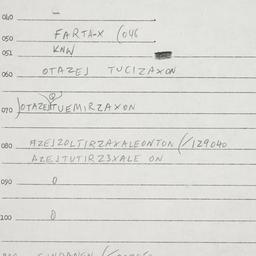 040 –
050 FARTA-X (046
051 KNW
060 OTAZEJ TUCIZAXON
070 OTAZEJTUEMIRZAXON
080 AZEJZOLTIRZAXALEONTON (/129040
AZEJTUTIRZ3XALE ON
090 0
100 0